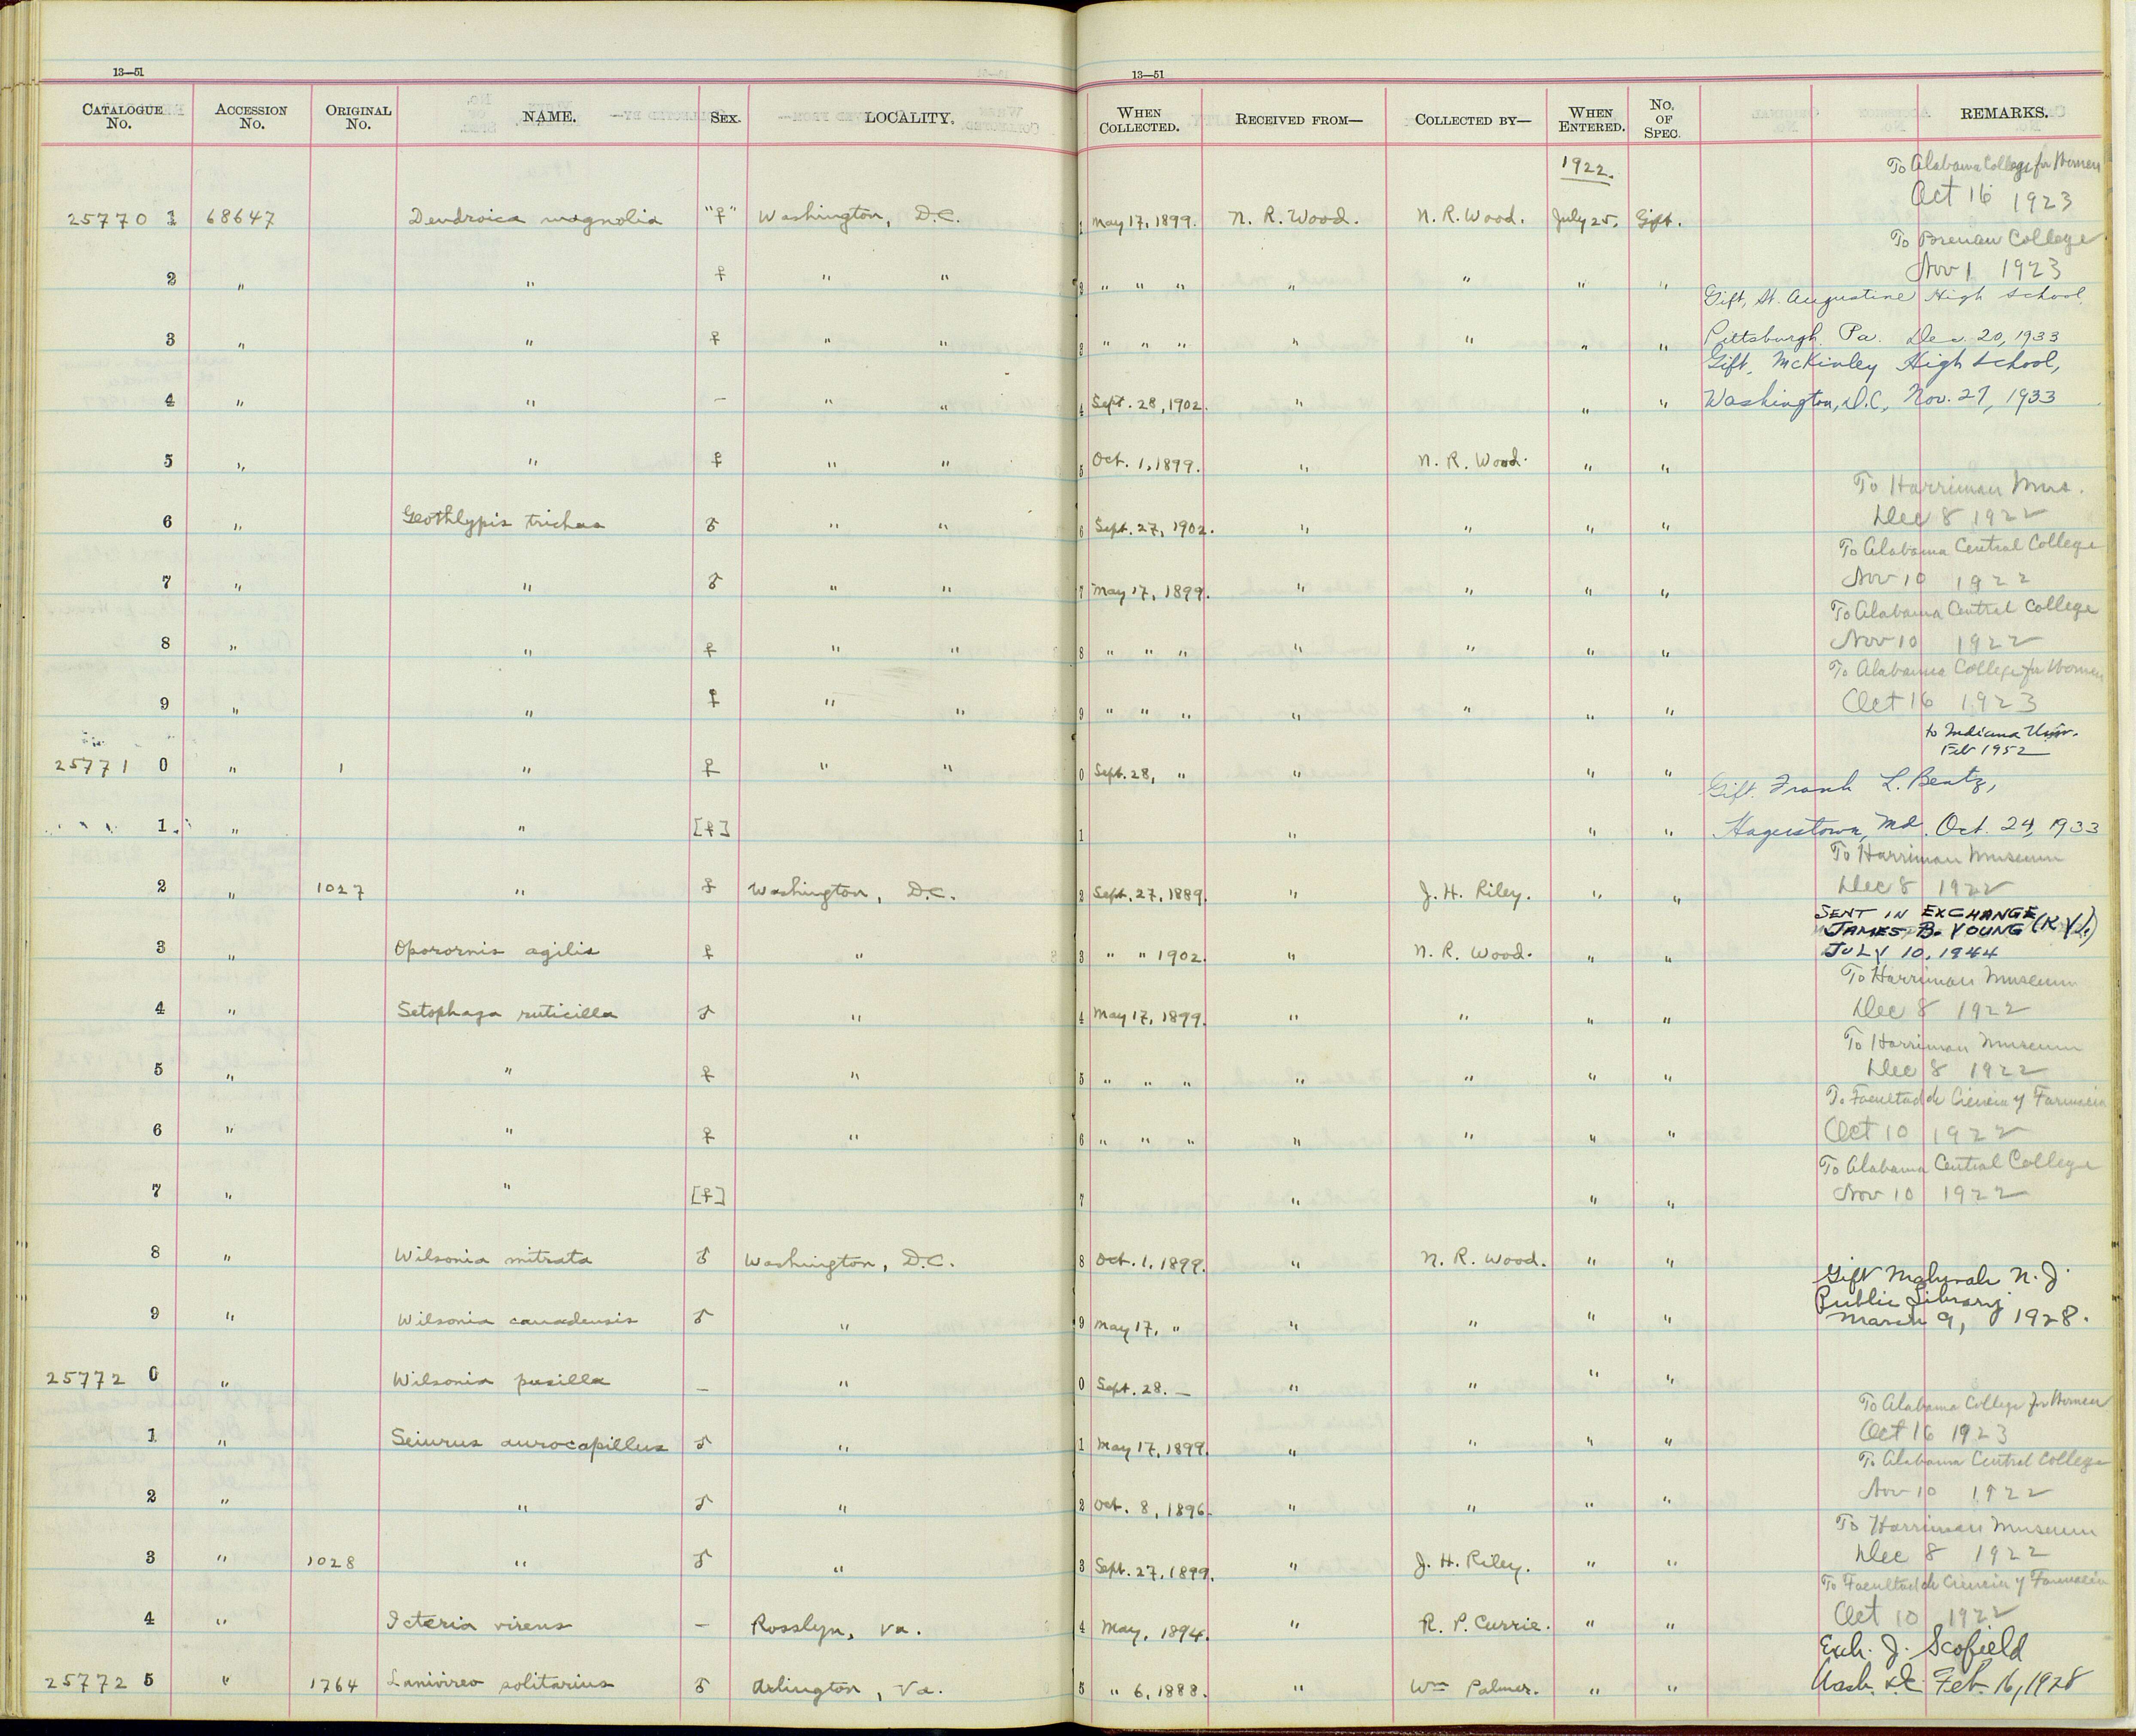 13—51 13—51
CATALOGUE No. ACCESSION No. ORIGINAL No. NAME. SEX. LOCALITY. WHEN COLLECTED. RECEIVED FROM— COLLECTED BY— WHEN ENTERED. No. OF SPEC. REMARKS.
1922. To Alabama College for Women
Oct 16 1923
25770 1 68647 Dendroica magnolia "♀" Washington, D.C. 1 May 17, 1899. N. R. Wood. N. R. Wood. July 25. Gift.
To Brenau College
Nov 1 1923
2 " " ♀ " " 2 " " " " " " "
Gift, St. Augustine High School
3 " " ♀ " " 3 " " " " " " " Pittsburgh, Pa. Dec. 20, 1933
Gift, McKinley High School,
4 " " — " " 4 Sept. 28, 1902. " " " Washington, D.C., Nov. 27, 1933
5 " " ♀ " " 5 Oct. 1, 1899. " N. R. Wood. " "
To Harriman Mus.
Dec 8 1922
6 " Geothlypis trichas ♂ " " 6 Sept. 27, 1902. " " " "
To Alabama Central College
Nov 10 1922
7 " " ♂ " " 7 May 17, 1899. " " " "
To Alabama Central College
Nov 10 1922
8 " " ♀ " " 8 " " " " " " "
To Alabama College for Women
Oct 16 1923
9 " " ♀ " " 9 " " " " " " "
to Indiana Univ.
Feb 1952
25771 0 " 1 " ♀ " " 0 Sept. 28, " " " "
Gift. Frank L. Bentz,
1 " " [♀] 1 " " " Hagerstown, Md. Oct. 24, 1933
To Harriman Museum
Dec 8 1922
2 " 1027 " ♂ Washington, D.C. 2 Sept. 27, 1889. " J. H. Riley. " "
SENT IN EXCHANGE
JAMES B. YOUNG (KY.)
JULY 10, 1944
3 " Oporornis agilis ♀ " 3 " " 1902. " N. R. Wood. " "
To Harriman Museum
Dec 8 1922
4 " Setophaga ruticilla ♂ " 4 May 17, 1899. " " " "
To Harriman Museum
Dec 8 1922
5 " " ♀ " 5 " " " " " " "
To Facultad de Ciencia y Farmacia
Oct 10 1922
6 " " ♀ " 6 " " " " " " "
To Alabama Central College
Nov 10 1922
7 " " [♀] 7 " " "
8 " Wilsonia mitrata ♂ Washington, D.C. 8 Oct. 1, 1899. " N. R. Wood. " "
Gift N. J.
Public Library
March 9, 1928.
9 " Wilsonia canadensis ♂ " 9 May 17, " " " " "
25772 0 " Wilsonia pusilla — " 0 Sept. 28. — " " " "
To Alabama College for Women
Oct 16 1923
1 " Seiurus aurocapillus ♂ " 1 May 17, 1899. " " " "
To Alabama Central College
Nov 10 1922
2 " " ♂ " 2 Oct. 8, 1896. " " " "
To Harriman Museum
Dec 8 1922
3 " 1028 " ♂ " 3 Sept. 27, 1899. " J. H. Riley. " "
To Facultad de Ciencia y Farmacia
Oct 10 1922
4 " Icteria virens — Rosslyn, Va. 4 May, 1894. " R. P. Currie. " "
Exch. J. Scofield
25772 5 " 1764 Lanivireo solitarius ♂ Arlington, Va. 5 " 6, 1888. " Wm Palmer. " " Wash. D.C. Feb. 16, 1928